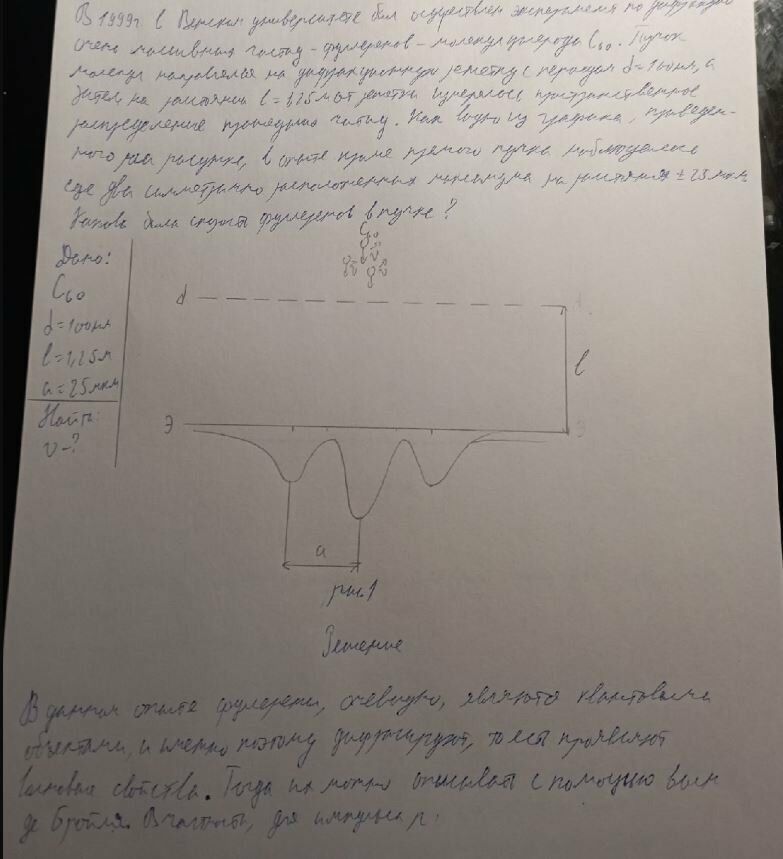 В 1999г в Венском университете был осуществлен эксперимент по дифракции
очень массивных частиц - фуллеренов - молекул углерода C60. Пучок
молекул направлялся на дифракционную решетку с периодом d=100нм, а
затем на расстоянии l=1,25м от решетки измерялось пространственное
распределение прошедших частиц. Как видно из графика, приведен-
ного на рисунке, в опыте кроме прямого пучка наблюдалось
еще два симметрично расположенных максимума на расстоянии ±25мкм.
Какова была скорость фуллеренов в пучке?
Дано:
C60
d=100нм
l=1,25м
a=25мкм
Найти:
v-?
C60
v v
v v
d
l
Э
Э
a
рис.1
Решение
В данном опыте фуллерены, очевидно, являются квантовыми
объектами, и именно поэтому дифрагируют, то есть проявляют
волновые свойства. Тогда их можно описывать с помощью волн
де Бройля. В частности, для импульса p: